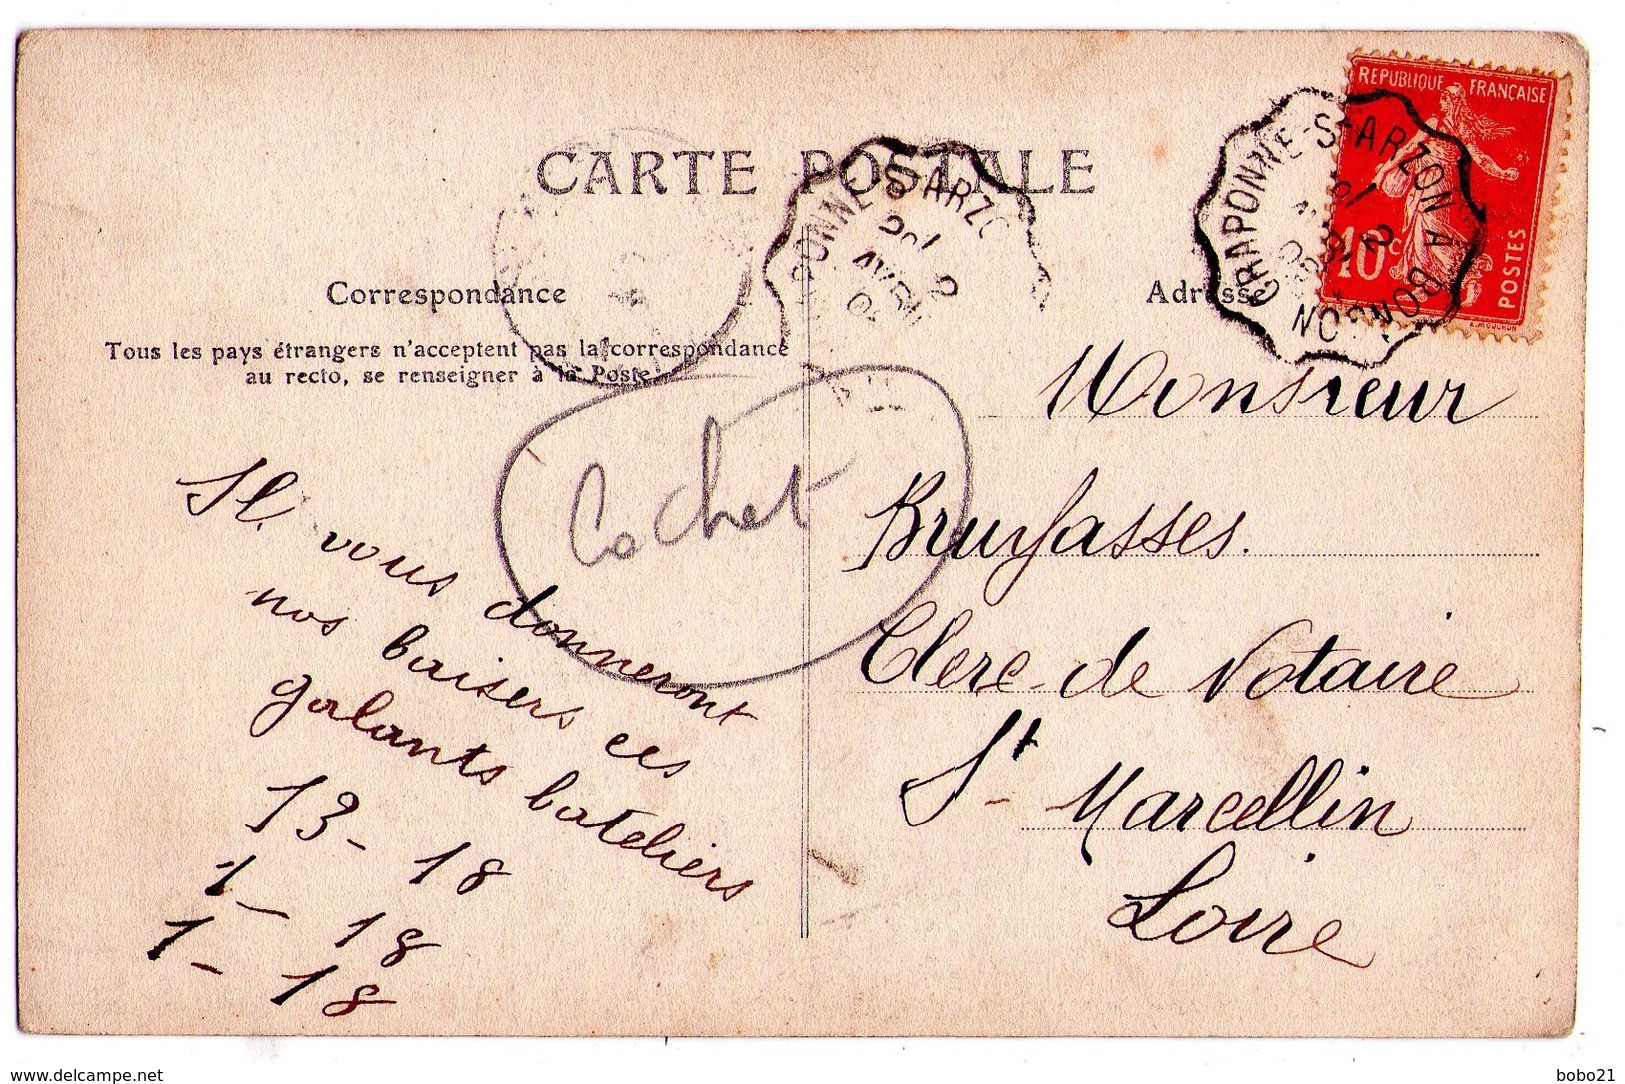 REPUBLIQUE FRANÇAISE
10c
POSTES
E. MOUCHON
CRAPONNE-St-ARZON A BONSON
2
PONNE-St-ARZO
AVRIL
CARTE POSTALE
Correspondance
Adresse
Tous les pays étrangers n'acceptent pas la correspondance
au recto, se renseigner à la Poste
Cachet
Il vous donneront
nos baisers ces
galants bateliers
13 - 18
1 - 18
1 - 18
Monsieur
Bruyfasses.
Clerc de Notaire
St - Marcellin
Loire
www.delcampe.net
bobo21